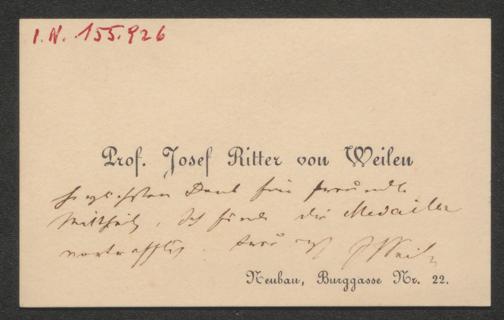 I.N. 155.926
Prof. Josef Ritter von Weilen
herzlichsten Dank für freundl.
Mittheilg. Ich finde die Medaille
vortrefflich. JWeil
Neubau, Burggasse Nr. 22.